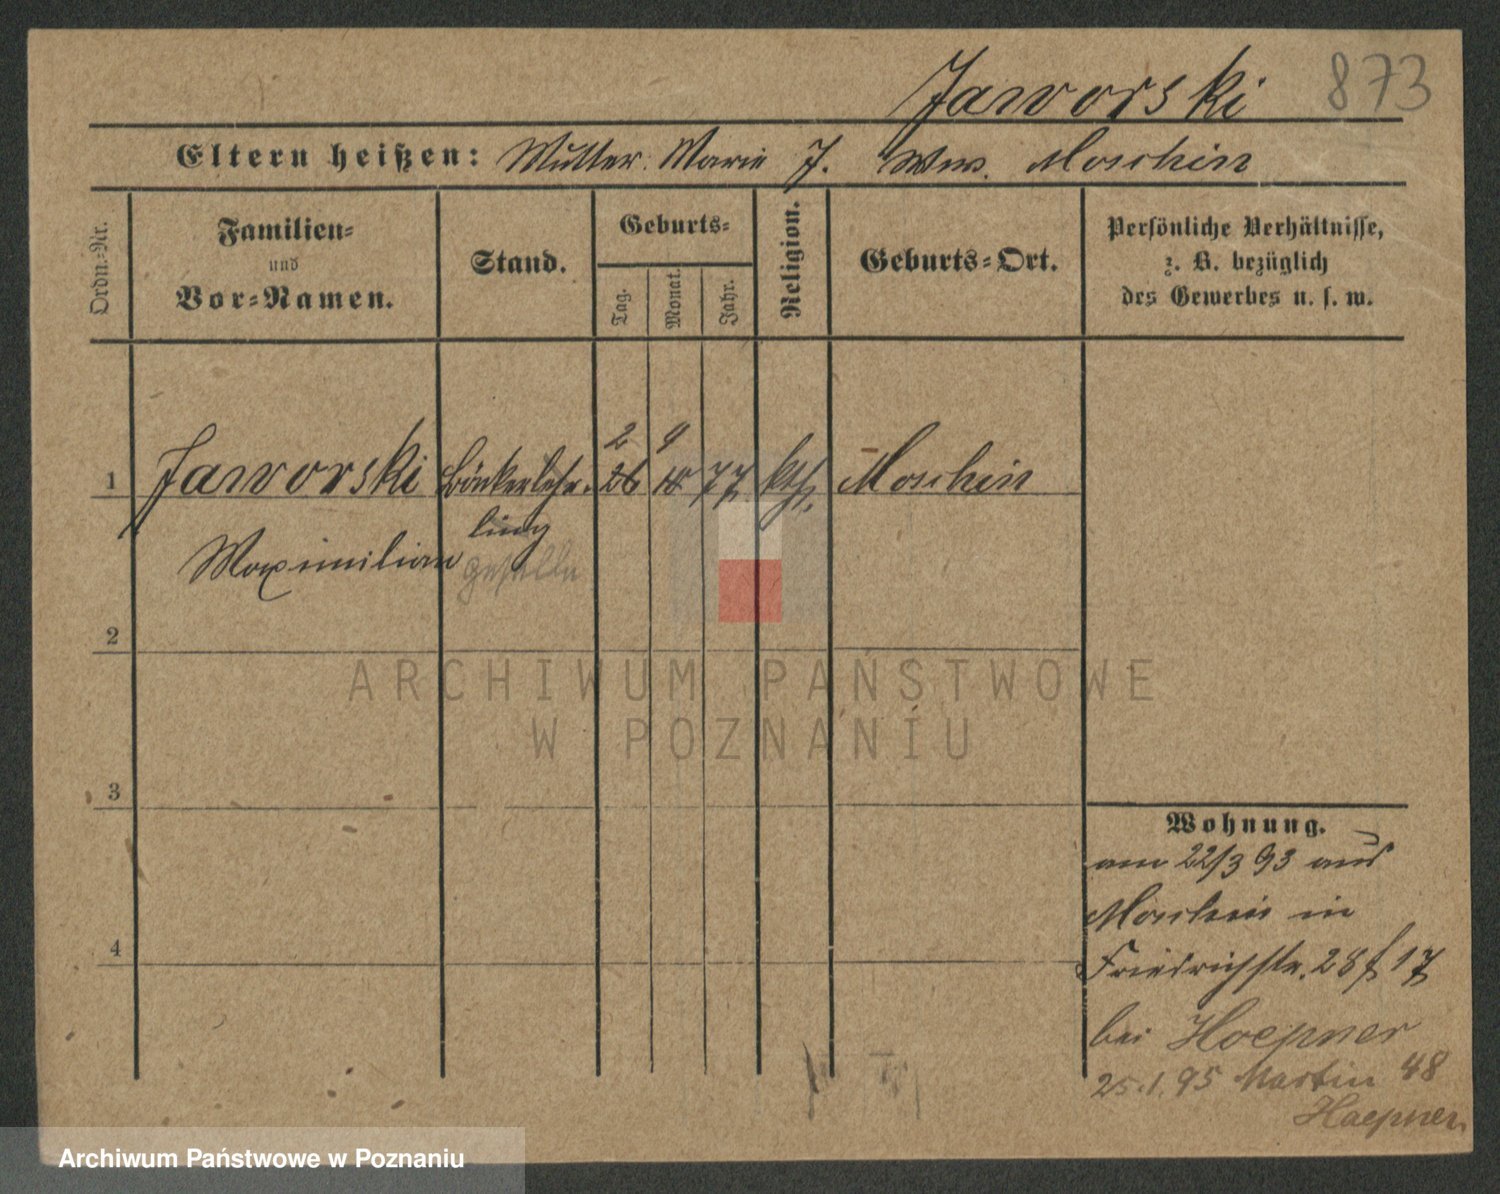 Jaworski 873
Eltern heißen: Mutter Marie J. Wwe. Moschin
Ordn.-Nr.
Familien-
und
Vor-Namen.
Stand.
Geburts-
Tag.
Monat.
Jahr.
Religion.
Geburts-Ort.
Persönliche Verhältnisse,
z. B. bezüglich
des Gewerbes u. s. w.
2 9
1 Jaworski Bäckerlehr- 26 10 77 kth. Moschin
ling
Maximilian
Geselle
2
3
4
Wohnung.
am 22/3 93 aus
Moschin in
Friedrichstr. 28 f 17
bei Hoepner
25.1.95 Martin 48
Hoepner.
ARCHIWUM PAŃSTWOWE
W POZNANIU
Archiwum Państwowe w Poznaniu